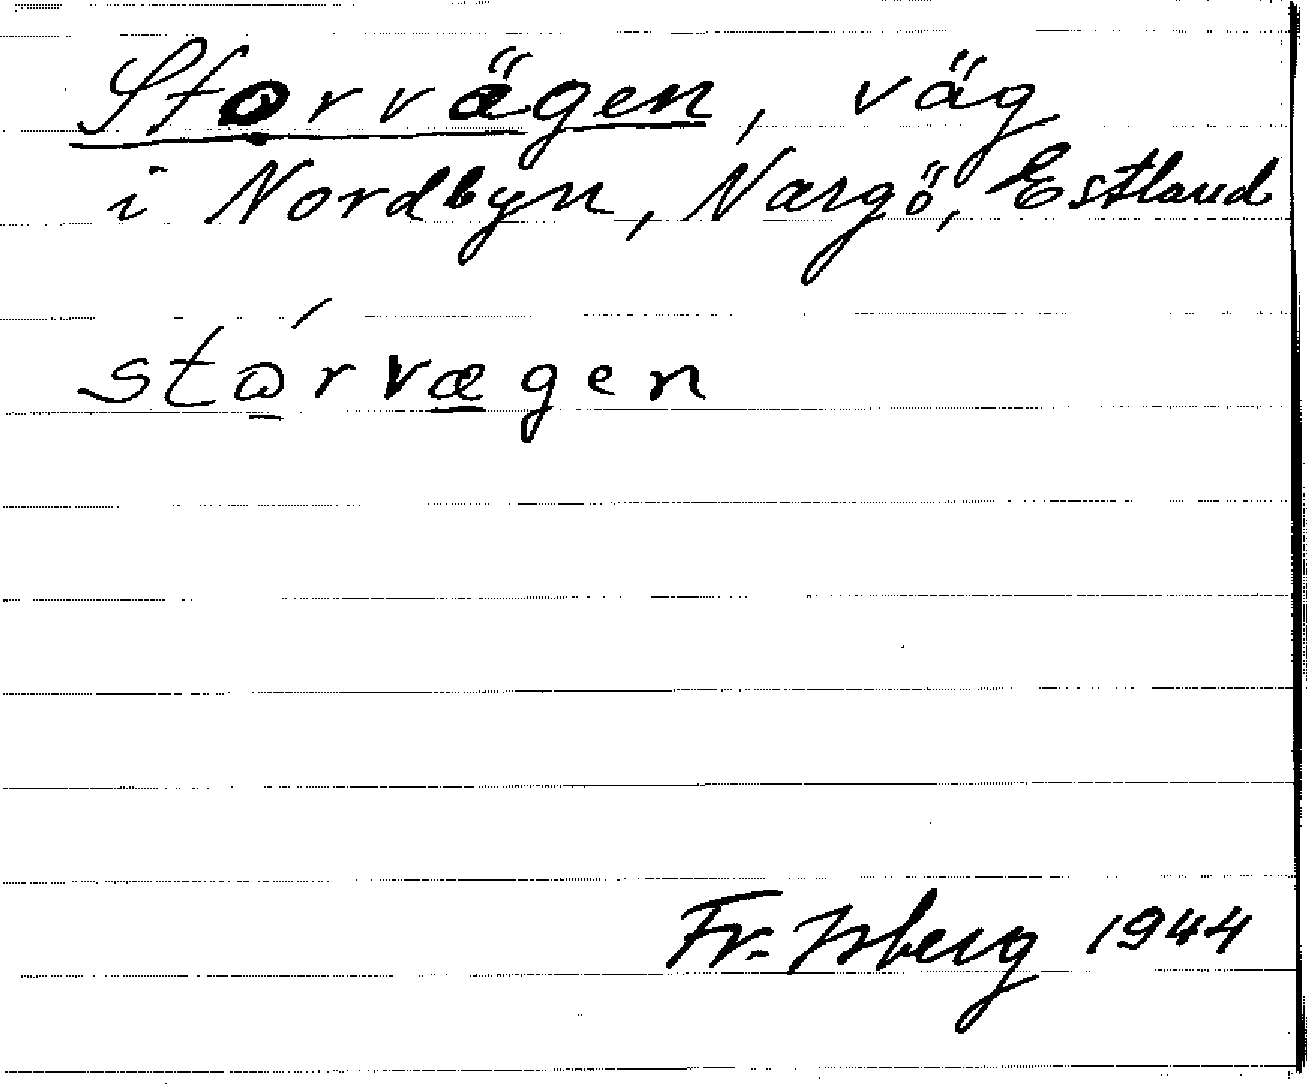 Storvägen, väg
i Nordbyn, Nargö, Estland
stώ̲rvæ̲gen
Fr. Isberg 1944